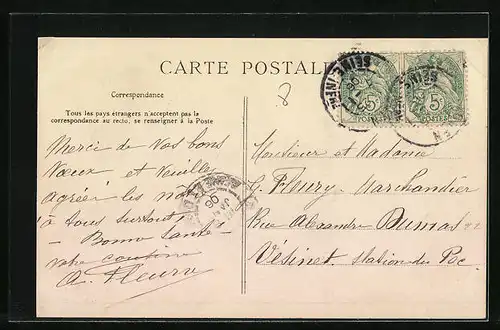 CARTE POSTALE
8
Correspondance
Tous les pays étrangers n'acceptent pas la
correspondance au recto, se renseigner à la Poste
Merci de vos bons
vœux et veuillez
agréer les nôtres
à tous surtout
- Bonne Santé -
votre cousine
A. Fleury
Monsieur et Madame
G. Fleury - Marchandier
Rue Alexandre Dumas 22
Vésinet. Station du Pec.
5c
POSTES
5c
POSTES
SEINE-INFRE